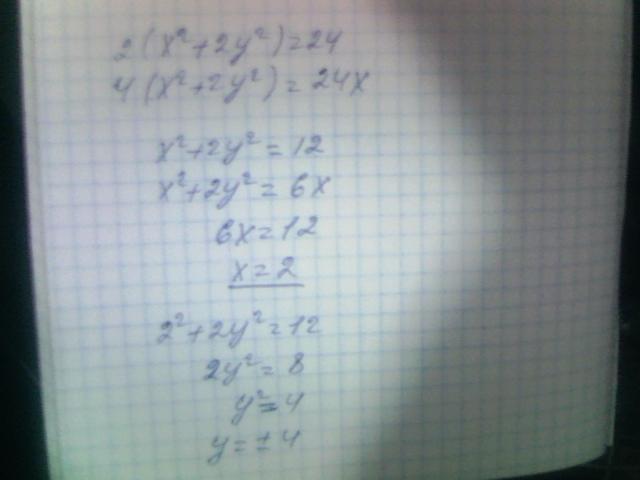 2(x²+2y²)=24
4(x²+2y²)=24x
x²+2y²=12
x²+2y²=6x
6x=12
x=2
2²+2y²=12
2y²=8
y²=4
y=±4